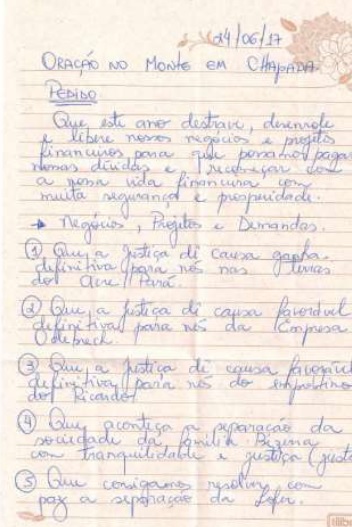 24/06/17
ORAÇÃO NO MONTE EM CHAPADA
PEDIDO
Que este ano destrave, desenrole
e libere nossos negócios e projetos
financeiros para que possamos pagar
nossas dívidas e recomeçar com
a nossa vida financeira com
muita segurança e prosperidade.
→ Negócios, Projetos e Demandas.
① Que a justiça dê causa ganha
definitiva para nós nas terras
do Acre Pará.
② Que a justiça dê causa favorável
definitiva para nós da Empresa
Odebrech.
③ Que a justiça dê causa favorável
definitiva para nós do empréstimo
do Ricardo.
④ Que aconteça a separação da
sociedade da família Bezerra
com tranquilidade e justiça (justa
⑤ Que consigamos resolver com
paz a separação da